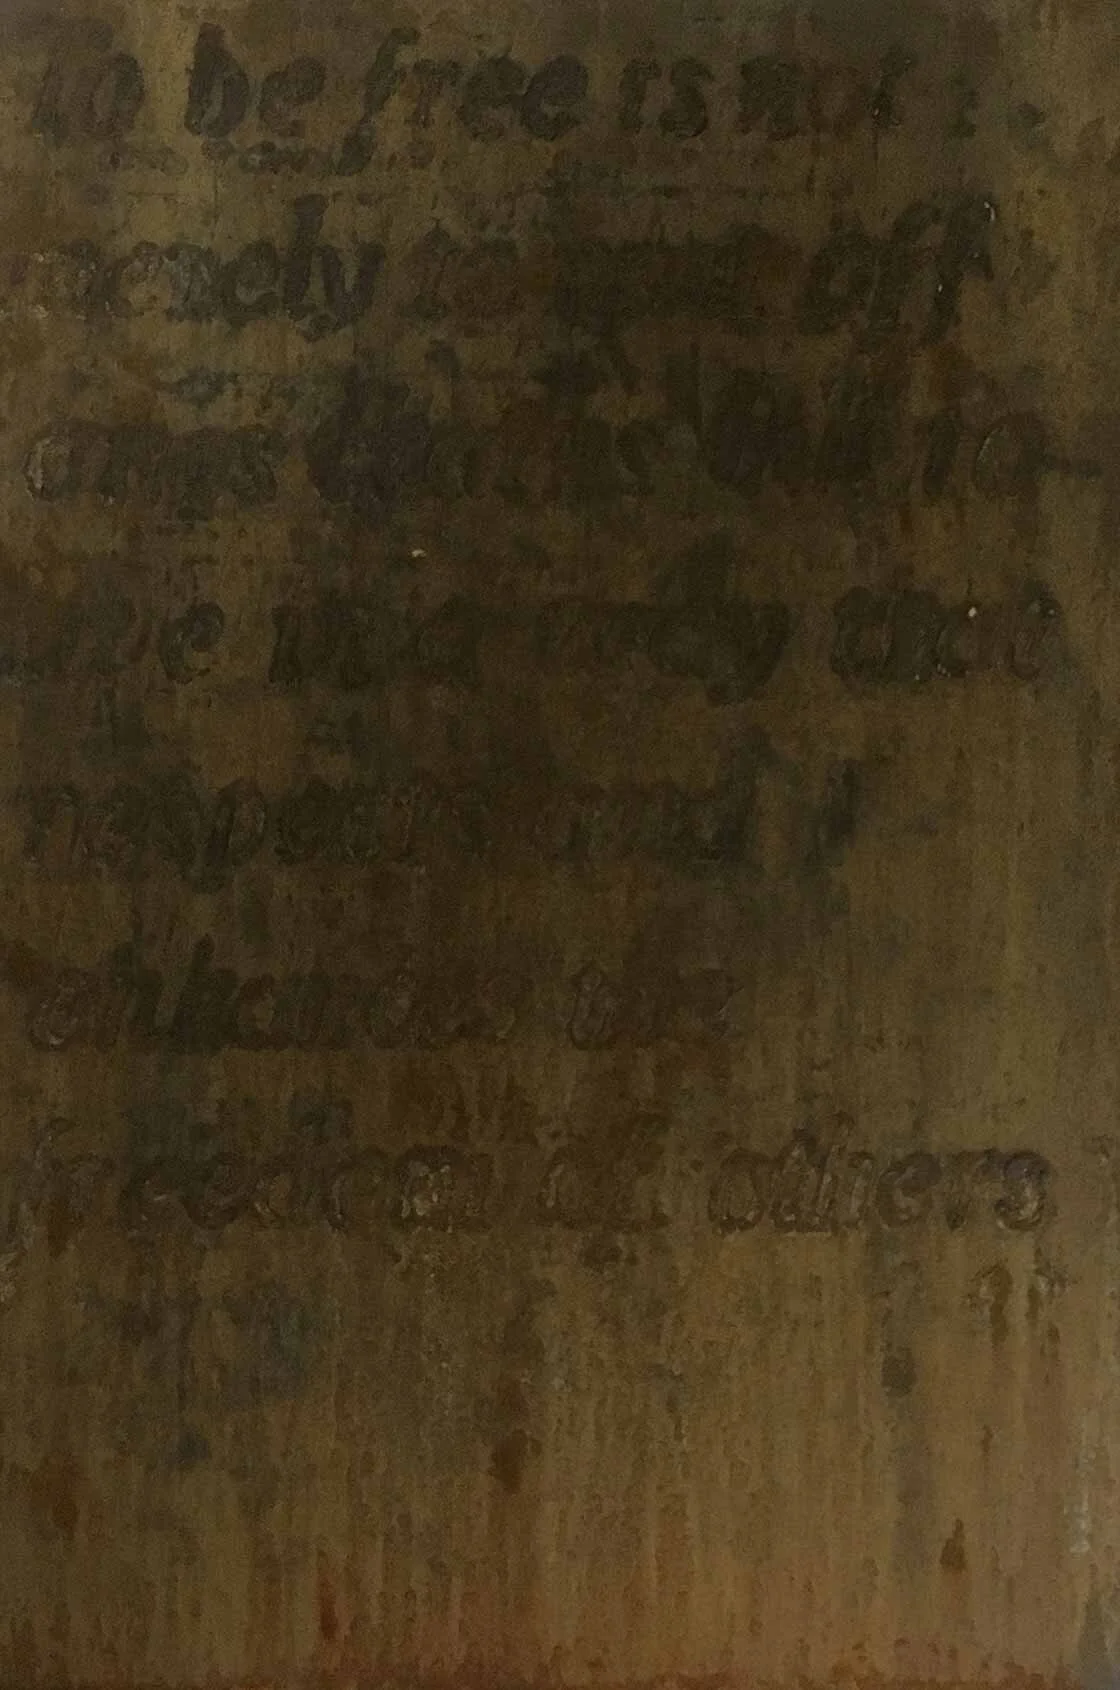 To be free is not
merely to cast off
ones chains but to
live in a way that
respects and
enhances the
freedom of others